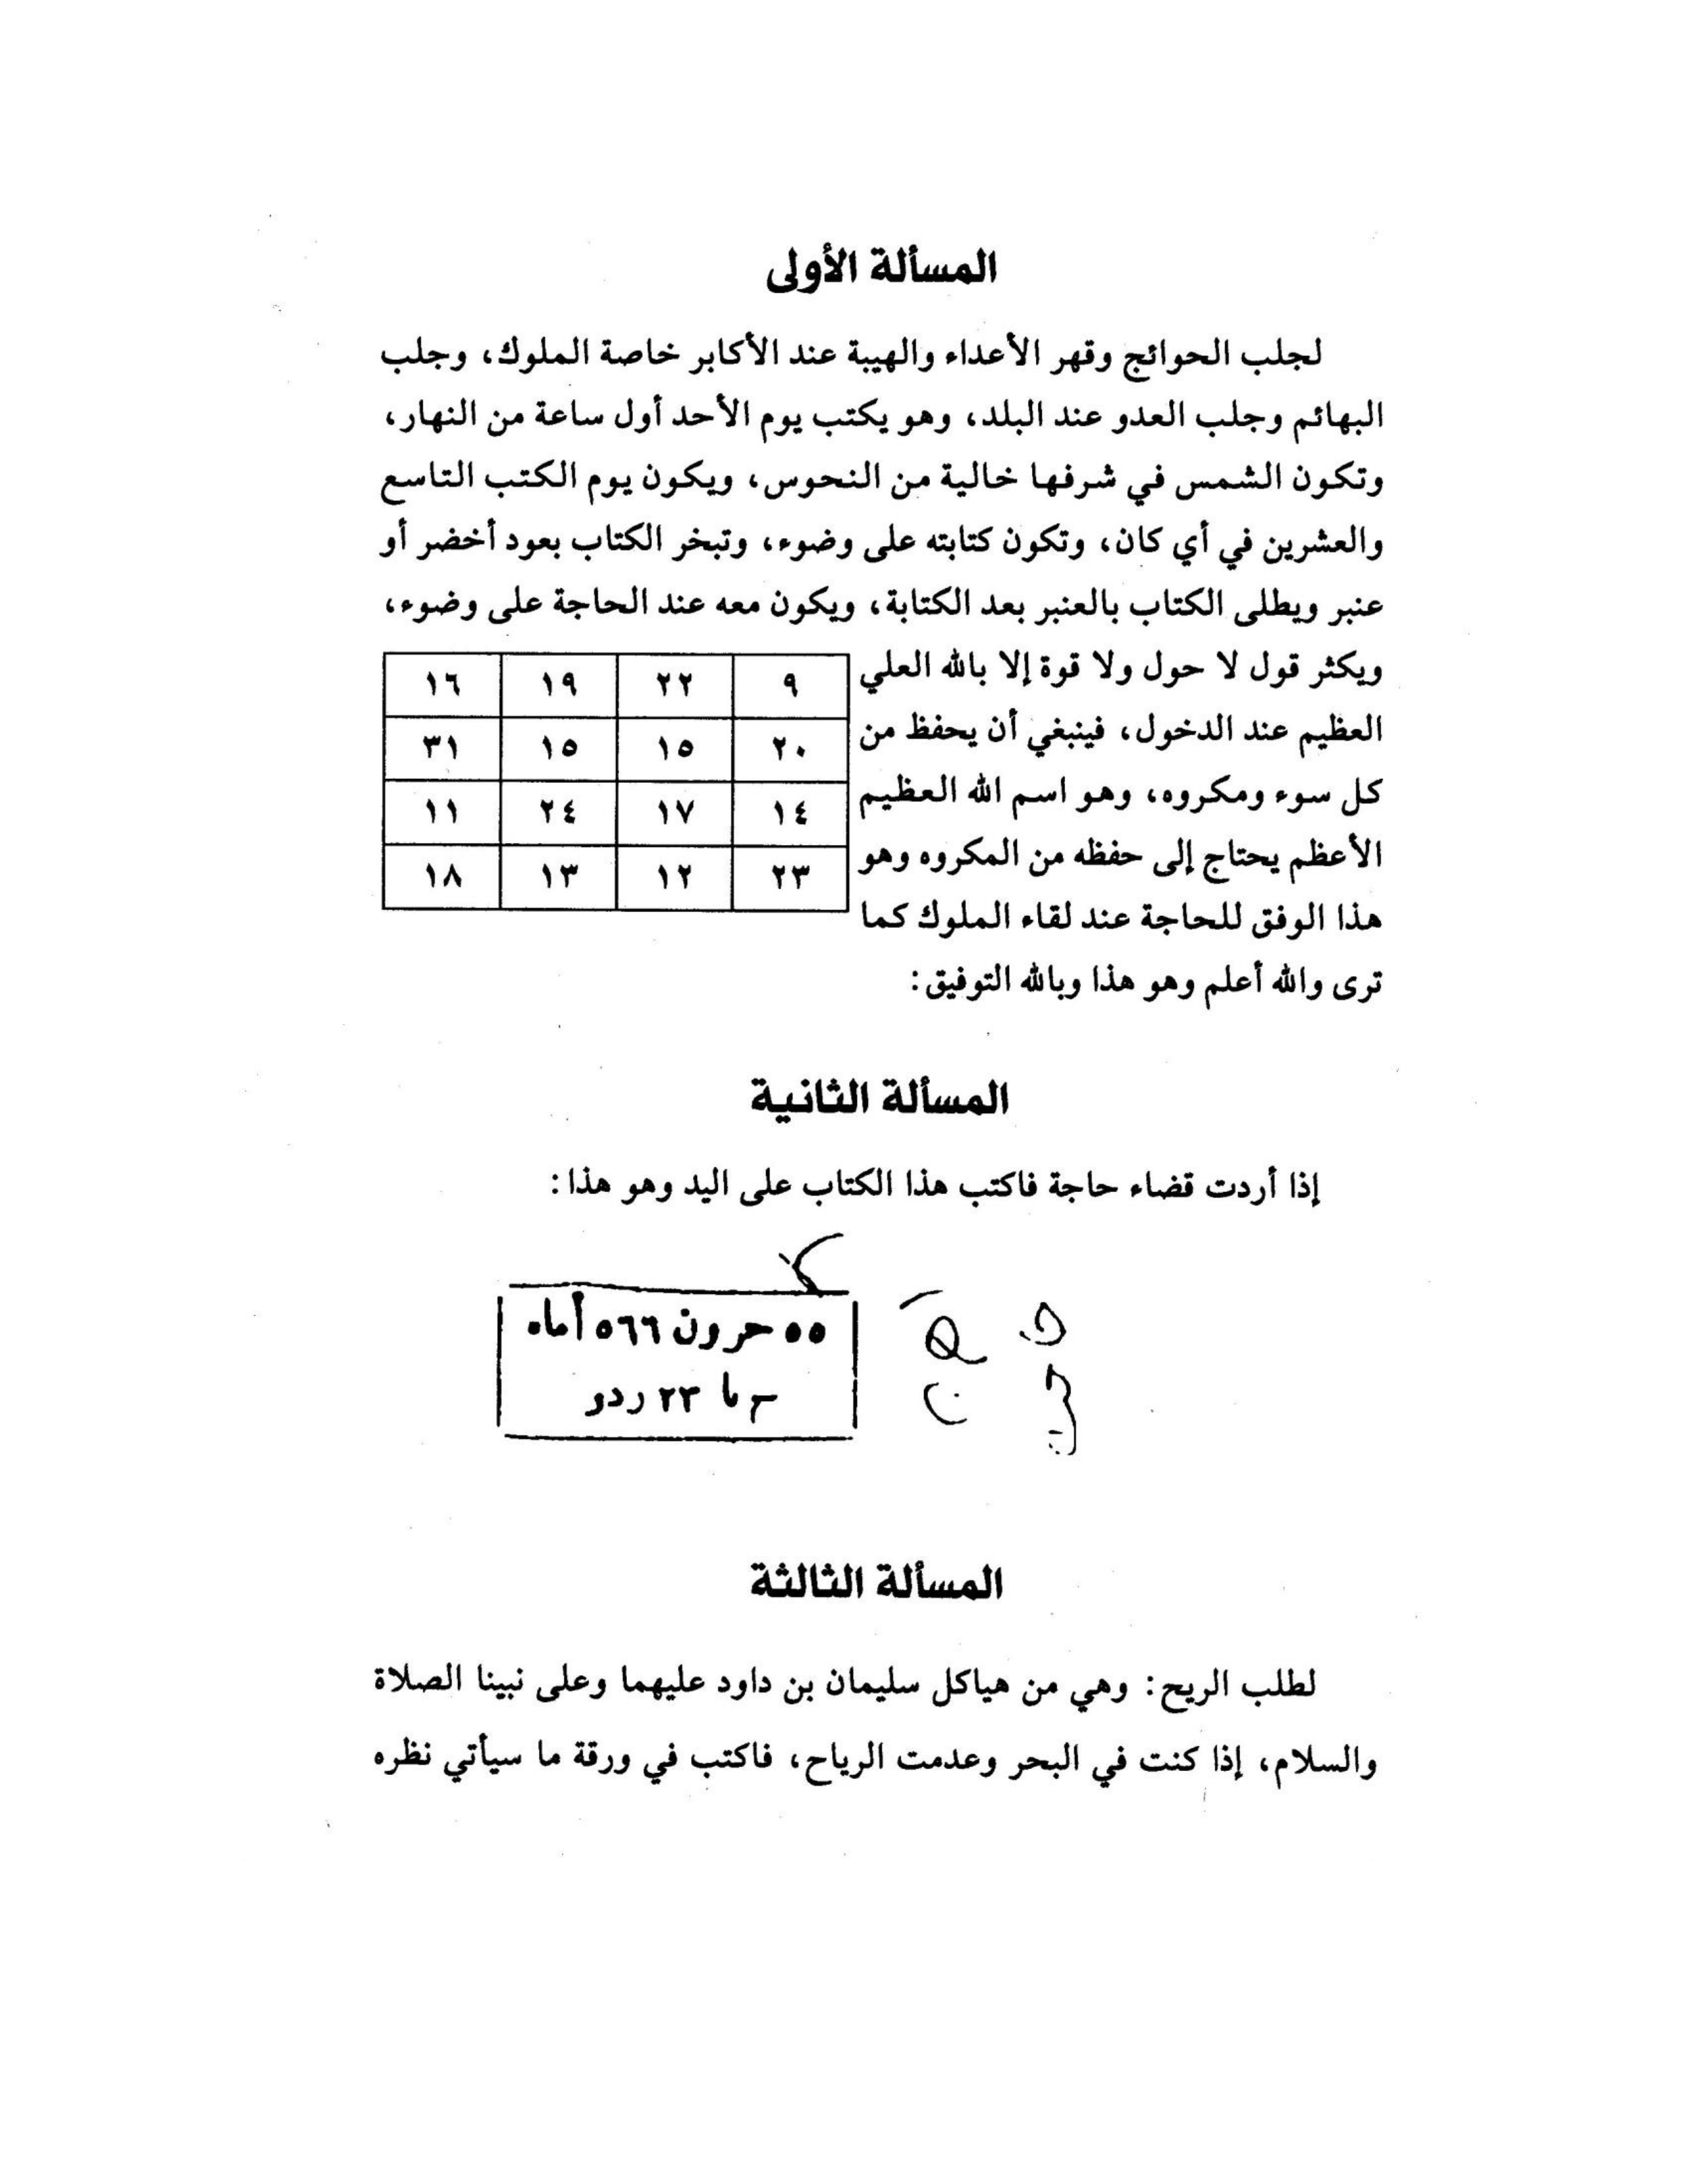 المسألة الأولى
لجلب الحوائج وقهر الأعداء والهيبة عند الأكابر خاصة الملوك، وجلب
البهائم وجلب العدو عند البلد، وهو يكتب يوم الأحد أول ساعة من النهار،
وتكون الشمس في شرفها خالية من النحوس، ويكون يوم الكتب التاسع
والعشرين في أي كان، وتكون كتابته على وضوء، وتبخر الكتاب بعود أخضر أو
عنبر ويطلى الكتاب بالعنبر بعد الكتابة، ويكون معه عند الحاجة على وضوء،
ويكثر قول لا حول ولا قوة إلا بالله العلي
العظيم عند الدخول، فينبغي أن يحفظ من
كل سوء ومكروه، وهو اسم الله العظيم
الأعظم يحتاج إلى حفظه من المكروه وهو
هذا الوفق للحاجة عند لقاء الملوك كما
ترى والله أعلم وهو هذا وبالله التوفيق:
٩ ٢٢ ١٩ ١٦
٢٠ ١٥ ١٥ ٣١
١٤ ١٧ ٢٤ ١١
٢٣ ١٢ ١٣ ١٨
المسألة الثانية
إذا أردت قضاء حاجة فاكتب هذا الكتاب على اليد وهو هذا:
٥٥ حرون ٥٦٦ أماه
حما ٢٣ ردو
المسألة الثالثة
لطلب الريح: وهي من هياكل سليمان بن داود عليهما وعلى نبينا الصلاة
والسلام، إذا كنت في البحر وعدمت الرياح، فاكتب في ورقة ما سيأتي نظره